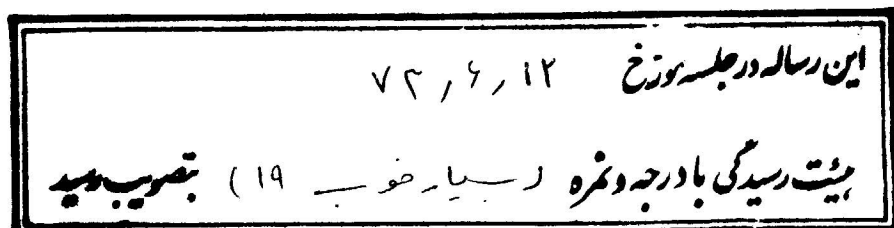 این رساله در جلسه مورخ ۷۳٫۶٫۱۲
هیئت رسیدگی با درجه و نمره (بسیار خوب ــ ۱۹) بتصویب رسید